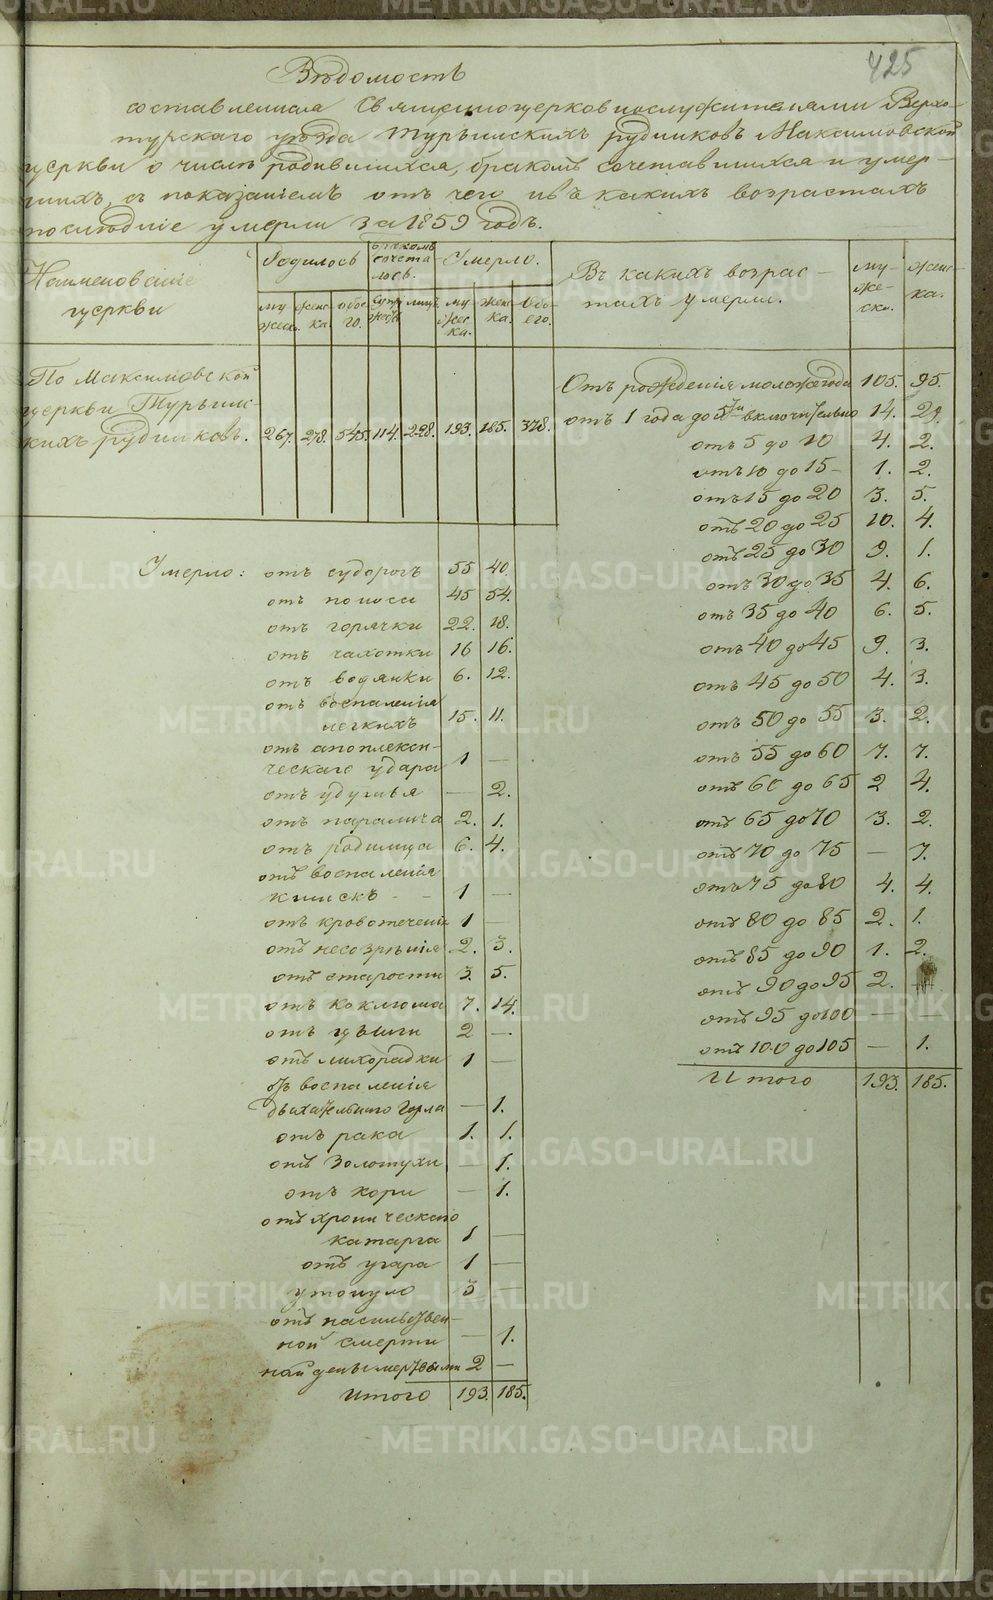 425
Вѣдомость
составленная Священноцерковнослужителями Верхо-
турскаго уѣзда Турьинскихъ рудниковъ Максимовской
церкви о числѣ родившихся, бракомъ сочетавшихся и умер-
шихъ, съ показаніемъ отъ чего и въ какихъ возрастахъ
послѣдніе умерли за 1859 годъ.
Наименованіе церкви
Родилось
Бракомъ сочета- лось.
Умерло.
Въ какихъ возрас-
тахъ умерли.
му- же- ска.
Женс- ка.
му- жеск. Женс- ка. обо- го. Супр жест лицъ. му- жес- ка. Жен- ка. Обо- его.
По Максимовской
церкви Турьинс-
кихъ рудниковъ. 267. 278. 545. 114. 228. 193. 185. 378.
Отъ рожденія моложе года 105. 95.
отъ 1 года до 5ти включительно 14. 29.
отъ 5 до 10 4. 2.
отъ 10 до 15 1. 2.
отъ 15 до 20 3. 5.
отъ 20 до 25 10. 4.
отъ 25 до 30 9. 1.
отъ 30 до 35 4. 6.
отъ 35 до 40 6. 5.
отъ 40 до 45 9. 3.
отъ 45 до 50 4. 3.
отъ 50 до 55 3. 2.
отъ 55 до 60 7. 7.
отъ 60 до 65 2 4.
отъ 65 до 70 3. 2.
отъ 70 до 75 — 7.
отъ 75 до 80 4. 4.
отъ 80 до 85 2. 1.
отъ 85 до 90 1. 2.
отъ 90 до 95 2.
отъ 95 до 100 —
отъ 100 до 105 — 1.
Итого 193. 185.
Умерло: отъ судорогъ 55 40.
отъ поноса 45 54.
отъ горячки 22. 18.
отъ чахотки 16 16.
отъ водянки 6. 12.
отъ воспаленія
легкихъ 15. 11.
отъ апоплекси-
ческаго удара 1 —
отъ удушья — 2.
отъ паралича 2. 1.
отъ родимца 6. 4.
отъ воспаленія
кишекъ - - 1 —
отъ кровотеченія 1 —
отъ несозрѣнія 2. 3.
отъ старости 3. 5.
отъ коклюша 7. 14.
отъ цынги 2 —
отъ лихорадки 1 —
отъ воспаленія
дыхательнаго горла — 1.
отъ рака 1. 1.
отъ золотухи — 1.
отъ кори — 1.
отъ хроническаго
катарра 1 —
отъ угара 1 —
утонуло 3 —
отъ насильствен-
ной смерти — 1.
найденъ мертвыми 2 —
Итого 193. 185.
METRIKI.GASO-URAL.RU